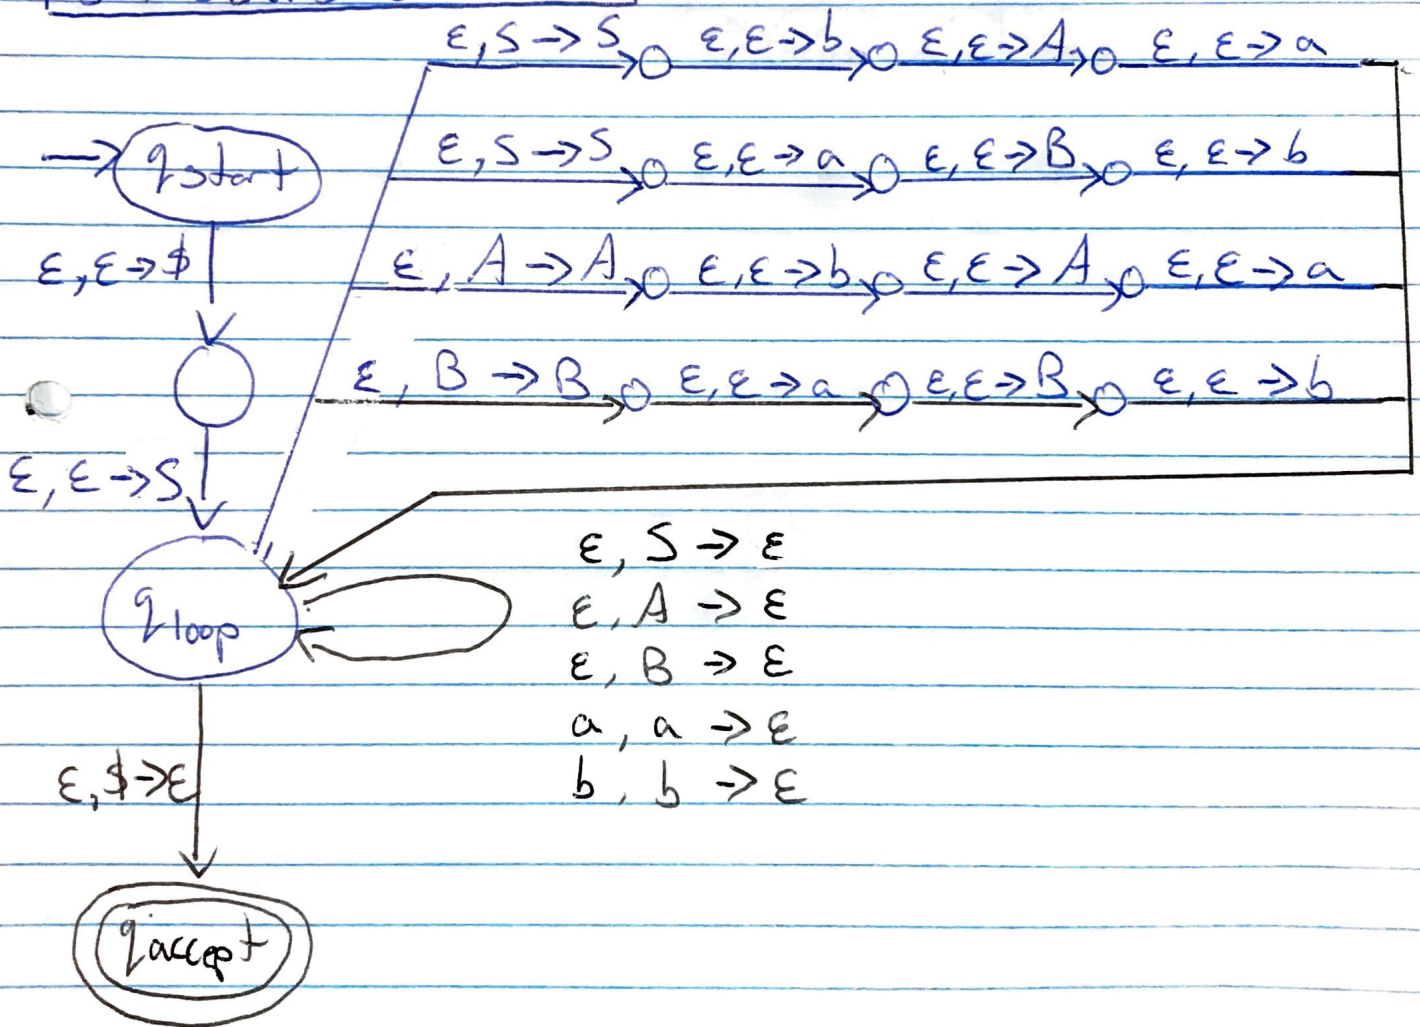 ε, S → S   ε, ε → b   ε, ε → A   ε, ε → a
q start   ε, S → S   ε, ε → a   ε, ε → B   ε, ε → b
ε, ε → $   ε, A → A   ε, ε → b   ε, ε → A   ε, ε → a
ε, B → B   ε, ε → a   ε, ε → B   ε, ε → b
ε, ε → S
ε, S → ε
q loop   ε, A → ε
ε, B → ε
a, a → ε
ε, $ → ε   b, b → ε
q accept